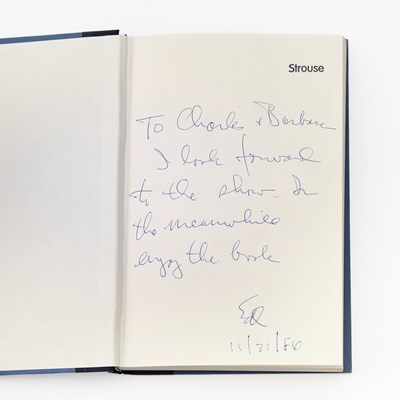 Strouse
To Charles & Barbara
I look forward
to the show. In
the meanwhile
enjoy the book
Ed
11/21/86